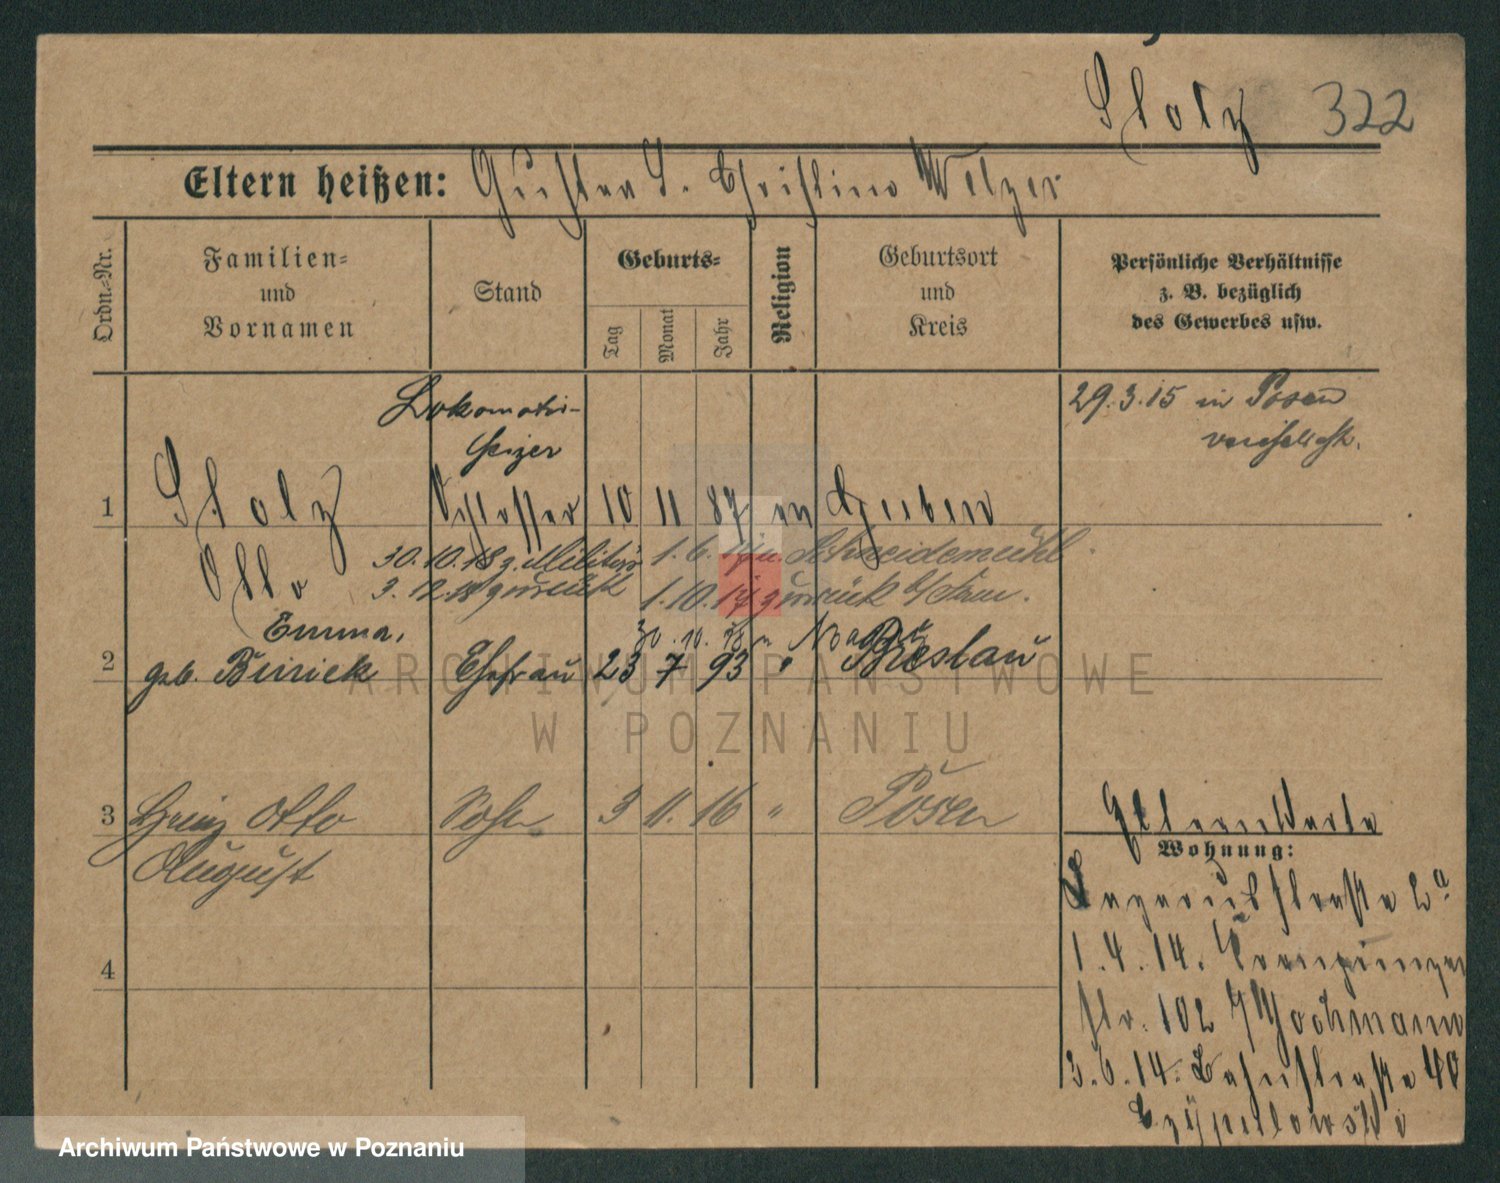 Stolz 322
Eltern heißen: Gustav S. Christine Welzer
Ordn.-Nr.
Familien-
und
Vornamen
Stand
Geburts-
Tag
Monat
Jahr
Religion
Geburtsort
und
Kreis
Persönliche Verhältnisse
z. B. bezüglich
des Gewerbes usw.
Lokomotiv-
heizer
29.3.15 in Posen
verehelicht.
1 Stolz Schlosser 10 11 87 ev
Otto
30.10.18 z. Militär 1.6.17 n. Schneidemühl
3.12.18 zurück 1.10.17 zurück
Emma,
30.10.18
2 geb. Ehefrau 23 7 93 " Breslau
ARCHIWUM PAŃSTWOWE
W POZNANIU
3 Heinz Otto Sohn 3 11. 16 " Posen
August
4
Wohnung:
2a
1.4.14.
str. 102
3.6.14. 40
Archiwum Państwowe w Poznaniu